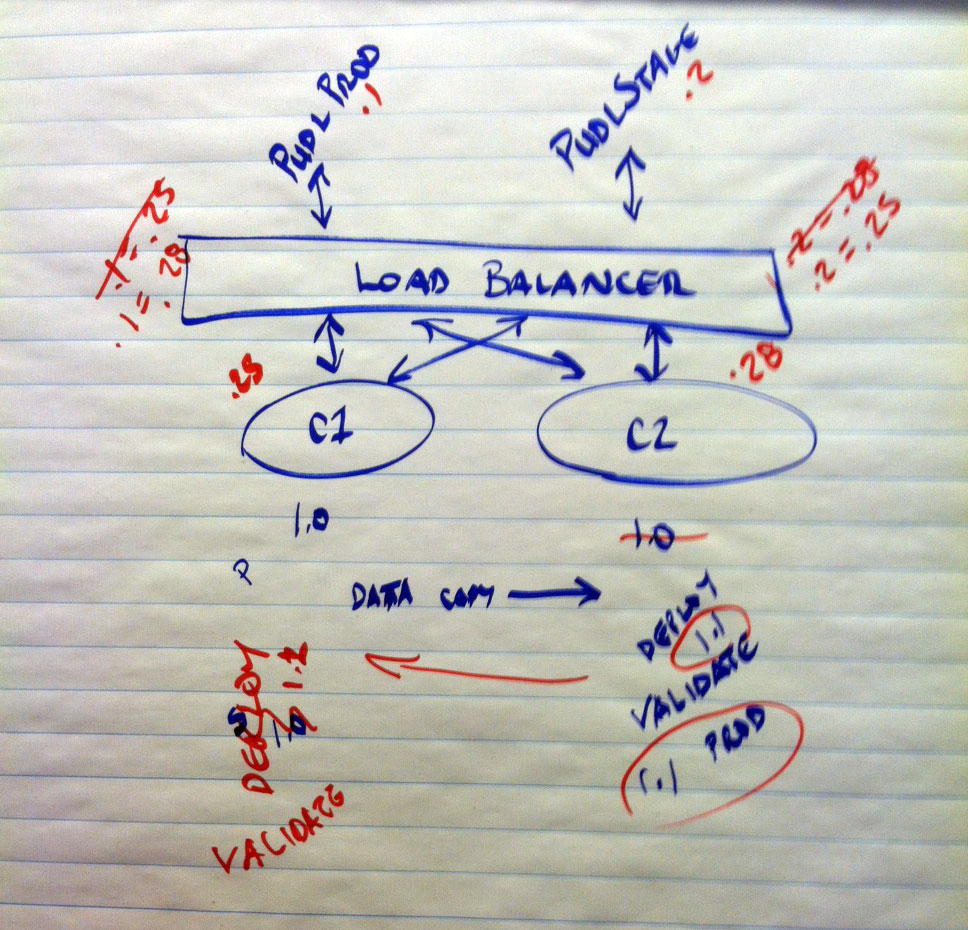 PUDL PROD
.1
PUDL STAGE
.2
.1 = .25
.1 = .28
.2 = .28
.2 = .25
LOAD BALANCER
.25
.28
C1
C2
1.0
1.0
P
DATA COPY
DEPLOY
1.1
VALIDATE
1.1 PROD
DEPLOY
S
1.0
VALIDATE